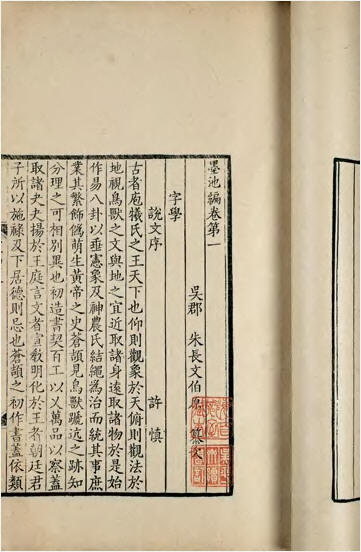 墨池編卷第一
吳郡 朱長文伯原 纂次
字學
說文序 許慎
古者庖犧氏之王天下也仰則觀象於天俯則觀法於
地視鳥獸之文與地之宜近取諸身遠取諸物於是始
作易八卦以垂憲象及神農氏結繩為治而統其事庶
業其繁飾僞萌生黃帝之史蒼頡見鳥獸蹏迒之跡知
分理之可相別異也初造書契百工以乂萬品以察蓋
取諸夬夬揚於王庭言文者宣教明化於王者朝廷君
子所以施祿及下居德則忌也蒼頡之初作書蓋依類